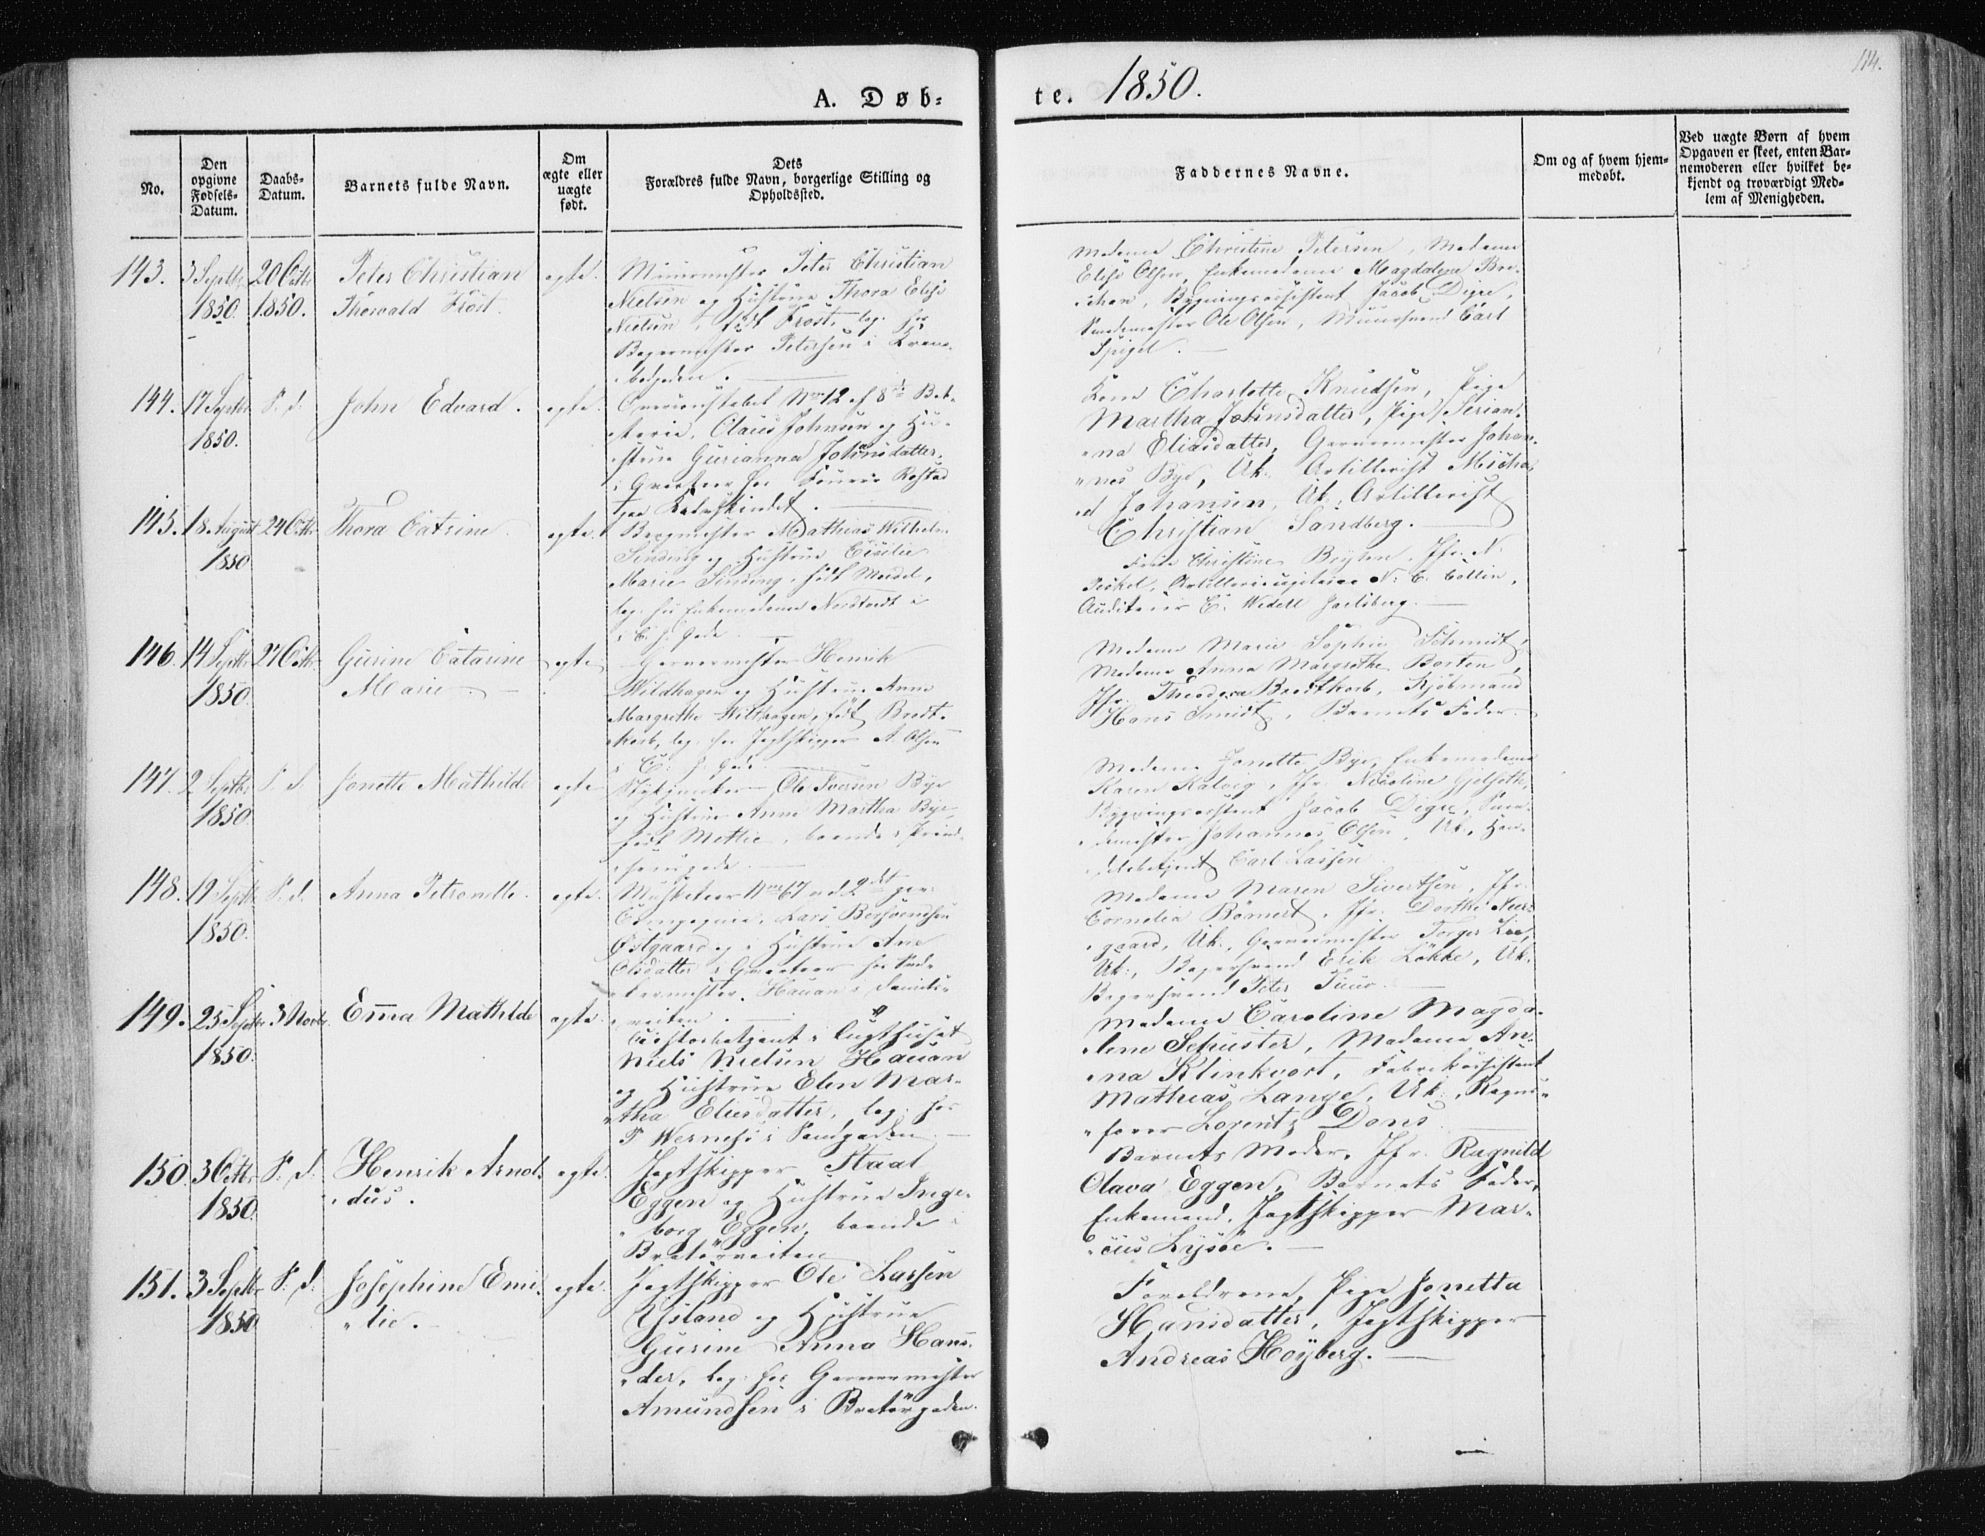 114.
A. Døb- te. 1850.
No.
Den opgivne Fødsels-Datum.
Daabs-Datum.
Barnets fulde Navn.
Om ægte eller uægte født.
Dets Forældres fulde Navn, borgerlige Stilling og Opholdssted.
Faddernes Navne.
Om og af hvem hjemmedøbt.
Ved uægte Børn af hvem Opgaven er skeet, enten Barnemoderen eller hvilket bekjendt og troværdigt Medlem af Menigheden.
143. 3 Septbr 1850. 20 Octbr 1850.
Peter Christian
Thorvald Frost.
egte.
Muurmester Peter Christian
Nielsen og Hustrue Thora Elise
Nielsen, født Frost, log. hos
Bagermester Petersen i
Madame Christine Petersen, Madame
Elise Olsen, Enkemadame Magdalena
Bygningsassistent Jacob Digre,
Smedemester Ole Olsen, Muursvend Carl
Spigel.
144. 17 Septbr 1850. S. d.
John Edvard.
egte.
No 12 af 8de Bat-
terie, Claus Johnsen og Hu-
strue Gurianna Johnsdatter,
i Qvarteer hos Rostad
paa Kalvskindet.
Kone Charlotte Knudsen, Pige
Martha Johnsdatter, Pige Serian-
na Eliasdatter, Garvermester Johan-
nes Bye, Uk. Artillerist Micha-
el Johansen, Uk. Artillerist
Christian Sandberg.
145. 18 August 1850 24 Octbr
Thora Catrine
egte.
Mathias Wilhelm
Sinding og Hustrue Cicilie
Marie Sinding, født Mendel,
log. hos Enkemadame i
Christine Jfr. N.
N. C. Collin,
Auditeur C. Wedell Jarlsberg.
146. 14 Septbr 1850. 27 Octbr
Gurine Catarine
Marie.
egte
Garvermester Henrik
Wildhagen og Hustrue Anne
Margrethe Wildhagen, født Bredt-
korb, log. hos Jagtskipper A. Olsen
Madame Marie Sophie Schmidt,
Madame Anna Margrethe Borten,
Jfr. Theodora Bredtkorb, Kjøbmand
Hans Smidt, Barnets Fader.
147. 2 Septbr 1850. S. d.
Jonette Mathilde
egte
Ole Iversen Bye
og Hustrue Anne Martha Bye,
boende i Prind-
sensgade.
Madame Jonette Bye, Enkemadame
Karen Kalvig, Jfr. Nicoline Gjelseth,
Bygningsassistent Jacob Digre, Sme-
demester Johannes Olsen, Uk. Han-
delsbetjent Carl Lassen.
148. 19 Septbr 1850. S. d.
Anna Petronelle.
egte.
Musketeer No 67 ved 2det
Compagnie, Lars
Østgaard og Hustrue Ane
Olsdatter i Qvarteer hos
Hauan i
veiten.
Madame Maren Sivertsen, Jfr.
Cornelia Bömert, Jfr. Dorthe
gaard, Uk., Garvermester Torger Lee,
Uk., Bagersvend Erik Løkke, Uk.
Bagersvend Peter
149. 25 Septbr 1850. 3 Novbr.
Emma Mathilde
egte.
i Tugthuset
Niels Nielsen Hauan
og Hustrue Elen Mar-
tha Eliesdatter, log. hos
P Wernesi i Sandgaden.
Madame Caroline Magda-
lene Schuster, Madame An-
na Klinkvort, Fabrikassistent
Mathias Lange, Uk.,
Lorentz Dons.
150. 3 Octbr 1850. S. d.
Henrik Arnol-
dus.
egte.
Jagtskipper Staal
Eggen og Hustrue Inge-
borg Eggen, boende i
Bratørveiten
Barnets Moder, Jfr. Ragnild
Olava Eggen, Barnets Fader,
Enkemand, Jagtskipper Mar-
cus Lysøe.
151. 3 Septbr 1850 S. d.
Josephine Emi-
lie.
egte.
Jagtskipper Ole Larsen
og Hustrue
Gurine Anna Hans-
der, log. hos Garvermester
Amundsen i Bratørgaden.
Forældrene, Pige Jonetta
Hansdatter, Jagtskipper
Andreas Høyberg.